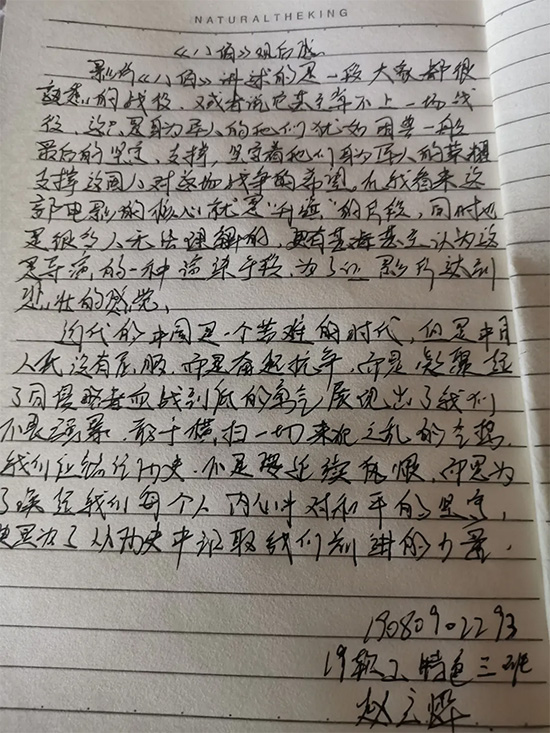 NATURALTHEKING
《八佰》观后感
影片《八佰》讲述的是一段大家都很
熟悉的战役,又或者说它甚至算不上一场战
役,这只是身为军人的他们犹如困兽一般
最后的坚守、支撑,坚守着他们身为军人的荣耀
支撑这国人对这场战争的希望。在我看来这
部电影的核心就是“升旗”的片段,同时也
是很多人无法理解的,更有甚者甚至认为这
是导演的一种渲染手段,为了让影片达到
悲壮的感觉。
近代的中国是一个苦难的时代,但是中国
人民没有屈服,而是奋起抗争,而是凝聚起
了同侵略者血战到底的勇气,展现出了我们
不畏强暴,敢于横扫一切来犯之敌的
我们应铭记历史,不是要延续仇恨,而是为
了唤起我们每个人内心中对和平的坚守,
更是为了从历史中汲取我们前进的力量。
19080902293
19软工特色三班
赵立烨